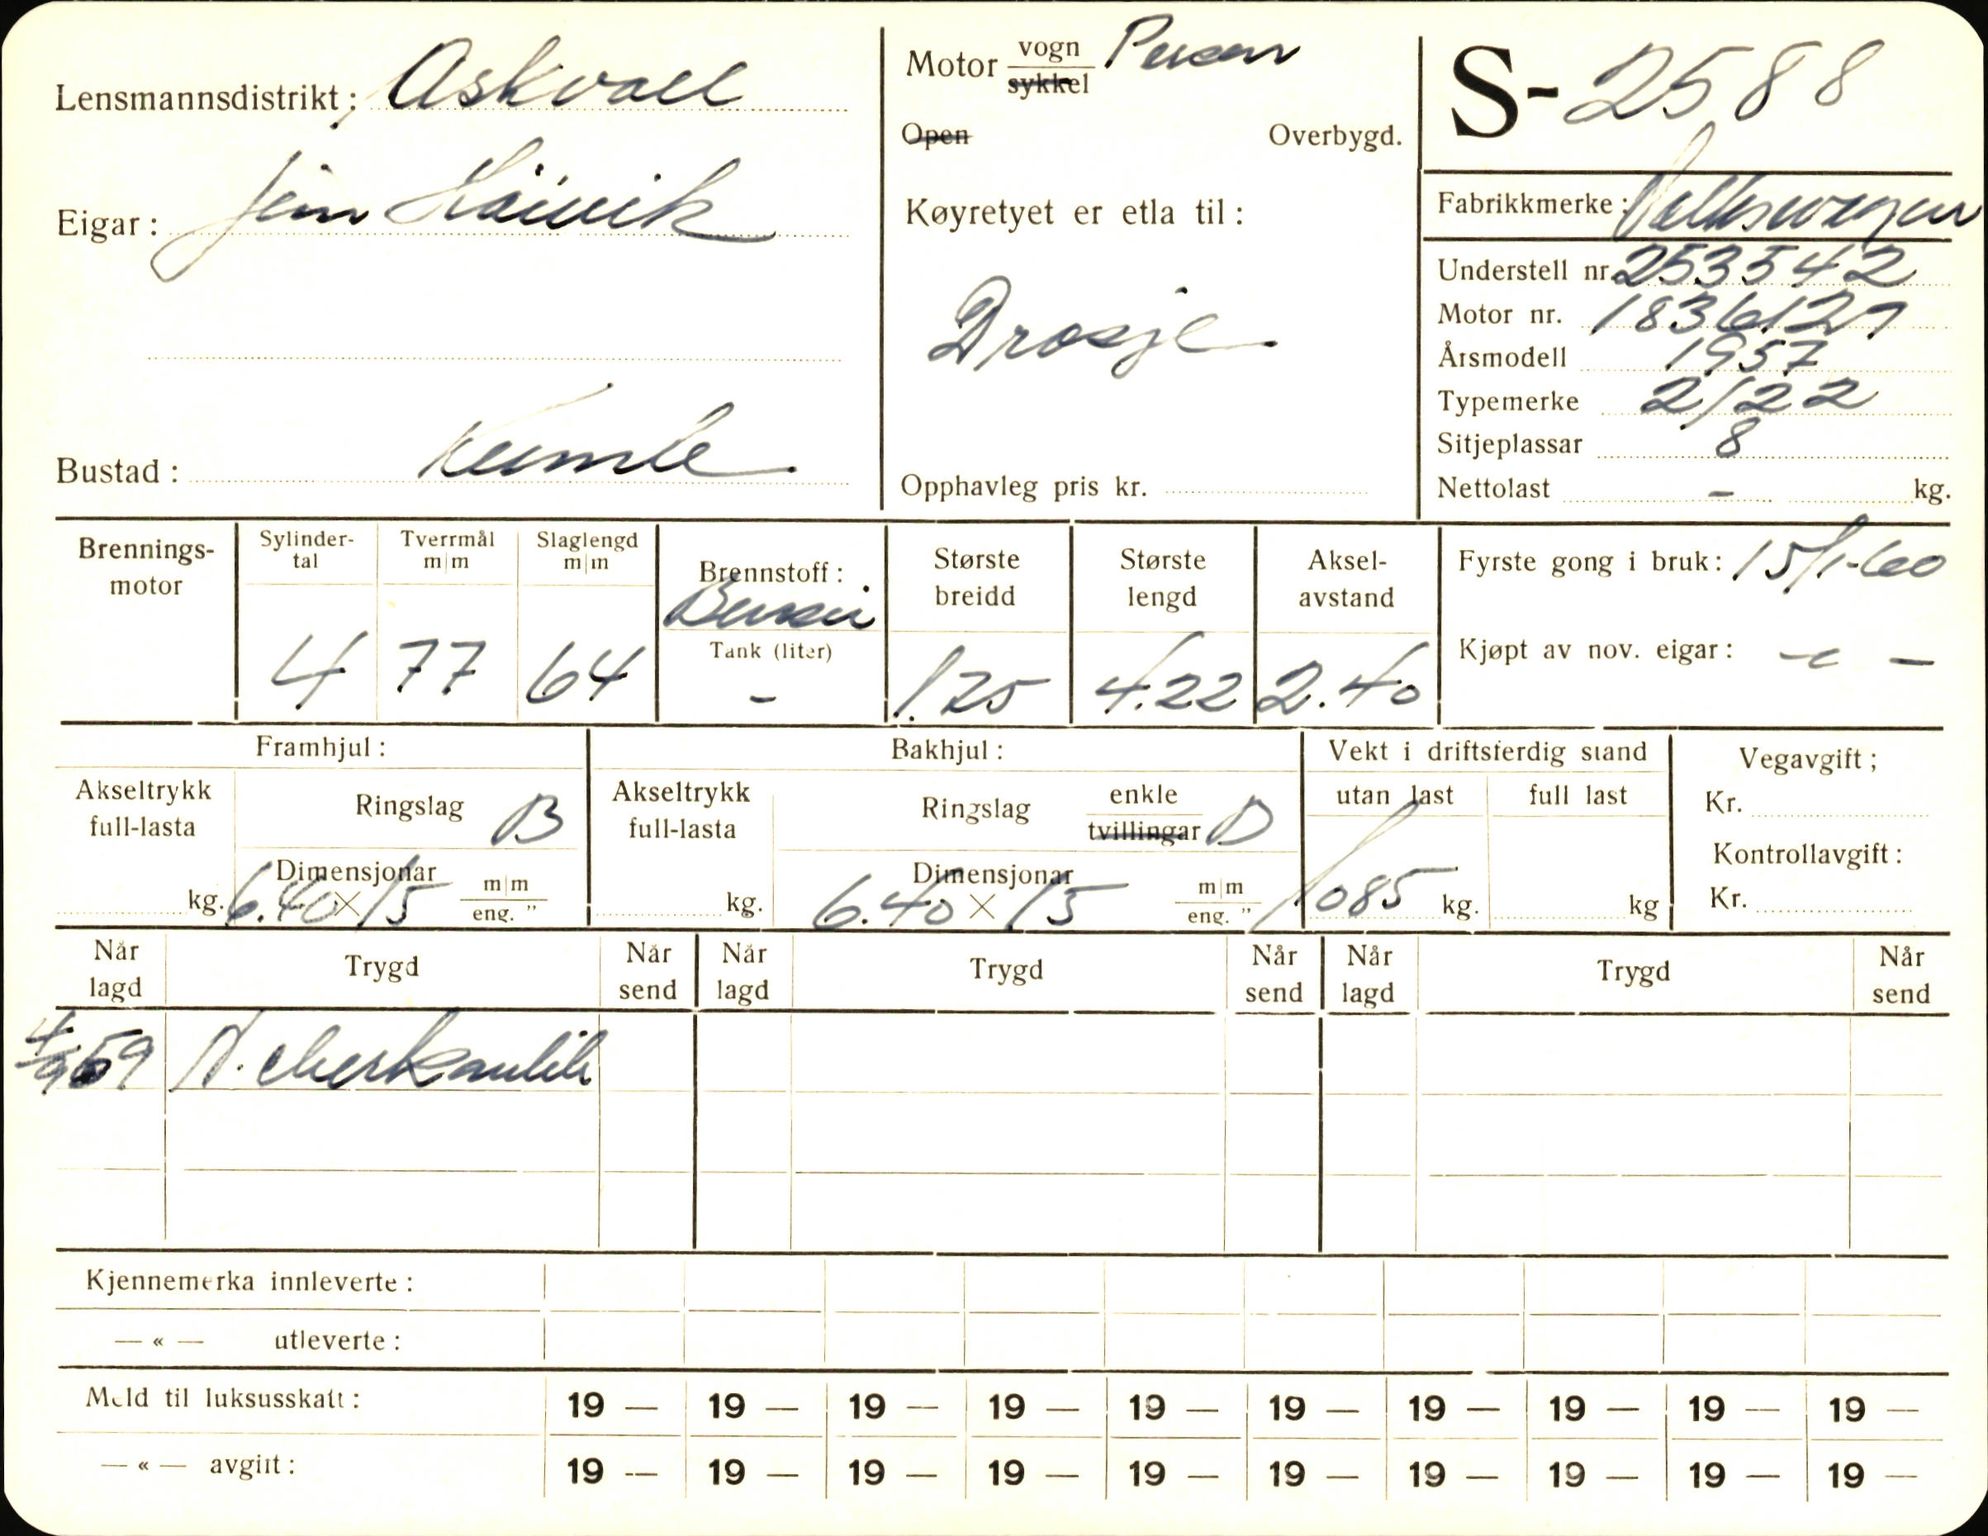 Lensmannsdistrikt: Askvoll
Eigar: Jon Høivik
Bustad:
Motor vogn Person
sykkel
Open Overbygd.
Køyretyet er etla til:
Drosje
Opphavleg pris kr.
S-2588
Fabrikkmerke: Volkswagen
Understell nr. 253542
Motor nr. 1836127
Årsmodell 1957
Typemerke 2/22
Sitjeplassar 8
Nettolast - kg.
Brennings-
motor
Sylinder-
tal
4
Tverrmål
m|m
77
Slaglengd
m|m
64
Brennstoff:
Bensin
Tank (liter)
-
Største
breidd
1.75
Største
lengd
4.22
Aksel-
avstand
2.40
Fyrste gong i bruk: 15/1-60
Kjøpt av nov. eigar: - " -
Framhjul:
Akseltrykk
full-lasta
kg.
Ringslag B
Dimensjonar
6.40 × 15 m|m
eng. "
Bakhjul:
Akseltrykk
full-lasta
kg.
Ringslag enkle
tvillingar B
Dimensjonar
6.40 × 15 m|m
eng. "
Vekt i driftsferdig stand
utan last full last
1085 kg. kg
Vegavgift;
Kr.
Kontrollavgift:
Kr.
Når
lagd Trygd Når
send Når
lagd Trygd Når
send Når
lagd Trygd Når
send
4/9 59 N. Merkantile
Kjennemerka innleverte:
— « — utleverte:
Meld til luksusskatt: 19 — 19 — 19 — 19 — 19 — 19 — 19 — 19 — 19 — 19 —
— « — avgift: 19 — 19 — 19 — 19 — 19 — 19 — 19 — 19 — 19 — 19 —